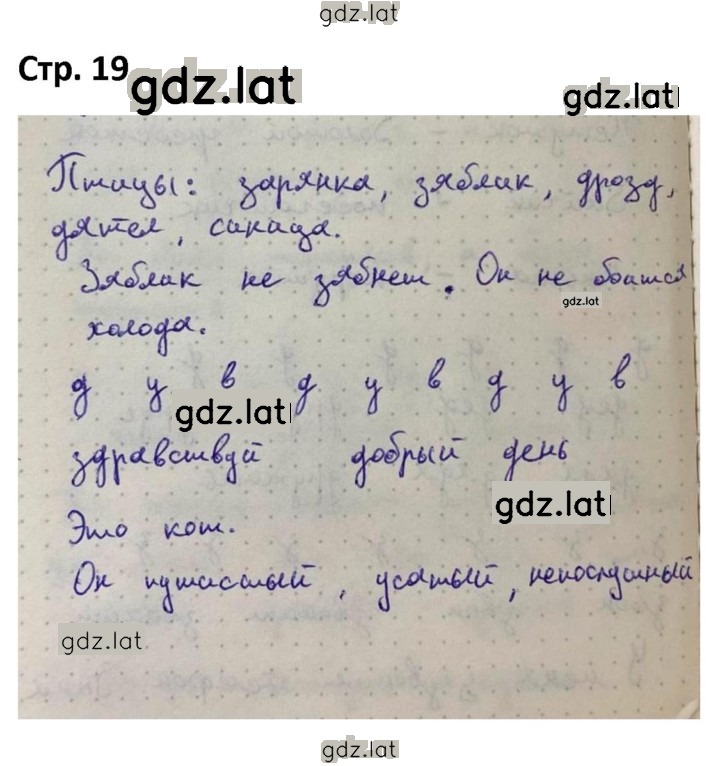 gdz.lat
Стр. 19
gdz.lat
gdz.lat
Птицы: зарянка, зяблик, дрозд,
дятел, синица.
Зяблик не зябнет. Он не боится
gdz.lat
холода.
д у в д у в д у в
gdz.lat
здравствуй добрый день
gdz.lat
Это кот.
Он пушистый, усатый, непослушный
gdz.lat
gdz.lat